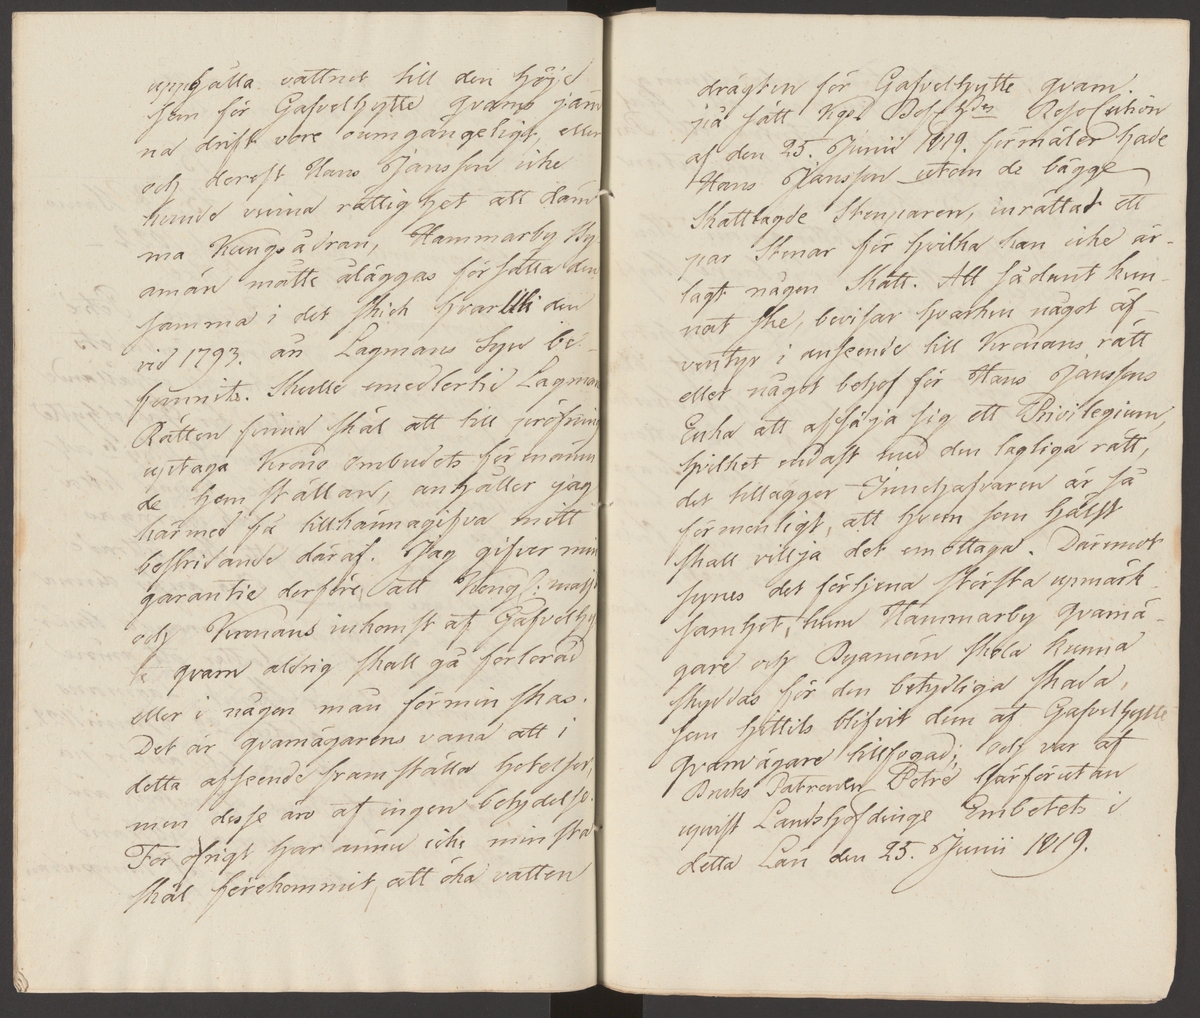 upphålla vattnet till den höjd
som för Gafvelhytte qvarns jäm
na drift vore oumgängeligt, eller
och derest Hans Jansson icke
kunde vinna rättighet att däm
ma Kungsådran, Hammarby By-
amän måtte åläggas försätta den
samma i det skick hvaruti den
vid 1793. års Lagmans Syn be-
funnits. Skulle emedlertid Lagmans
Rätten finna skäl att till pröfning
uptaga Krono Ombudets förmälan
de hemställan, anhåller jag
härmed få tillkännagifva mitt
bestridande däraf. Jag gifver min
garantie derföre, att Kongl: Maj:ts
och Kronans inkomst af Gafvelhyt
te qvarn aldrig skall gå förlorad
eller i någon mån förminskas.
Det är qvarnägarens vana att i
detta afseende framställa hotelser,
men desse äro af ingen betydelse.
För öfrigt har ännu icke minsta
skäl förekommit, att öka vatten
drägten för Gafvelhytte qvarn.
på sätt Kgl. Bef:hdes Resolution
af den 25. Junii 1819. förmäler hade
Hans Jansson utom de bägge
Skattlagde Stenparen, inrättat ett
par Stenar för hvilka han icke är-
lagt någon Skatt. Att sådant kun-
nat ske, bevisar hvarken något äf-
ventyr i anseende till Kronans rätt
eller något behof för Hans Janssons
Enka att afsäja sig ett Privilegium,
hvilket endast med den lagliga rätt,
det tillägger Innehafvaren är så
förmonligt, att hvem som hälst
skall vilja det emottaga. Däremot
synes det förtjena största upmärk-
samhet, huru Hammarby qvarnä-
gare och Byamän skola kunna
skyddas för den betydliga skada,
som hittils blifvit dem af Gafvelhytte
qvarnägare tillfogad; och var af
Bruks Patronen Petre härförutan
uppvist Landshöfdinge Embetets i
detta Län den 25. Junii 1819.